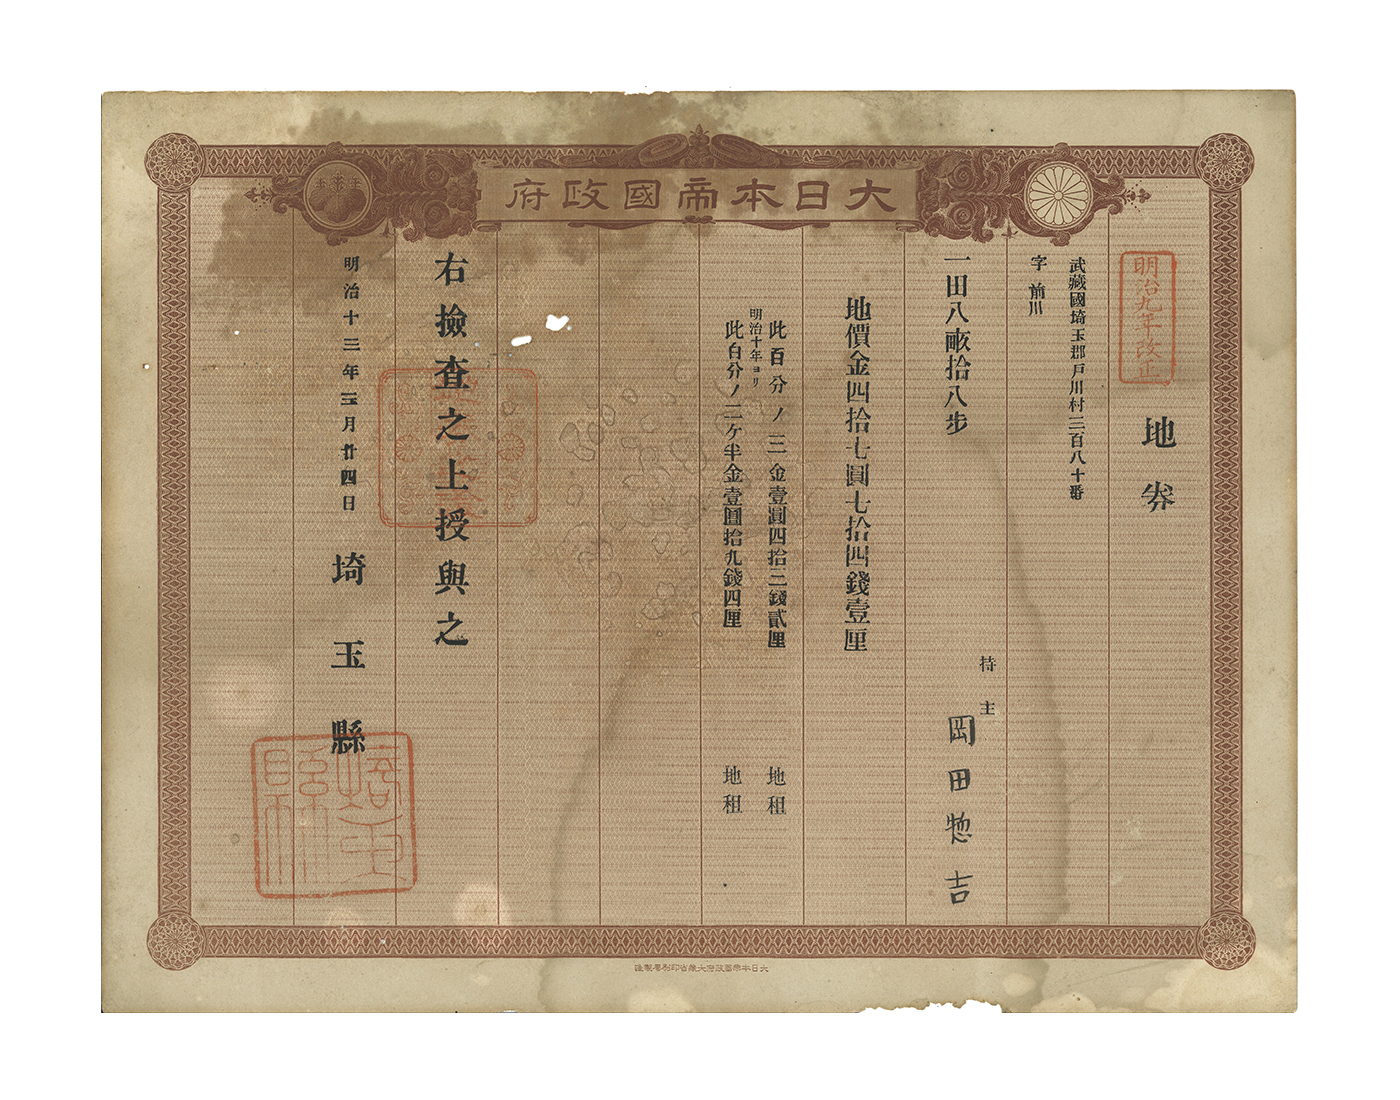 大日本帝國政府
明治九年改正
地券
武藏國埼玉郡戸川村三百八十番
字 前川
一田八畝拾八歩
持主 岡田惣吉
地價金四拾七圓七拾四錢壹厘
此百分ノ三金壹圓四拾三錢貳厘 地租
明治十年ヨリ
此百分ノ二ケ半金壹圓拾九錢四厘 地租
右撿査之上授與之
明治十三年三月廿四日 埼玉縣
埼玉縣
大日本帝國政府大藏省印刷局製造